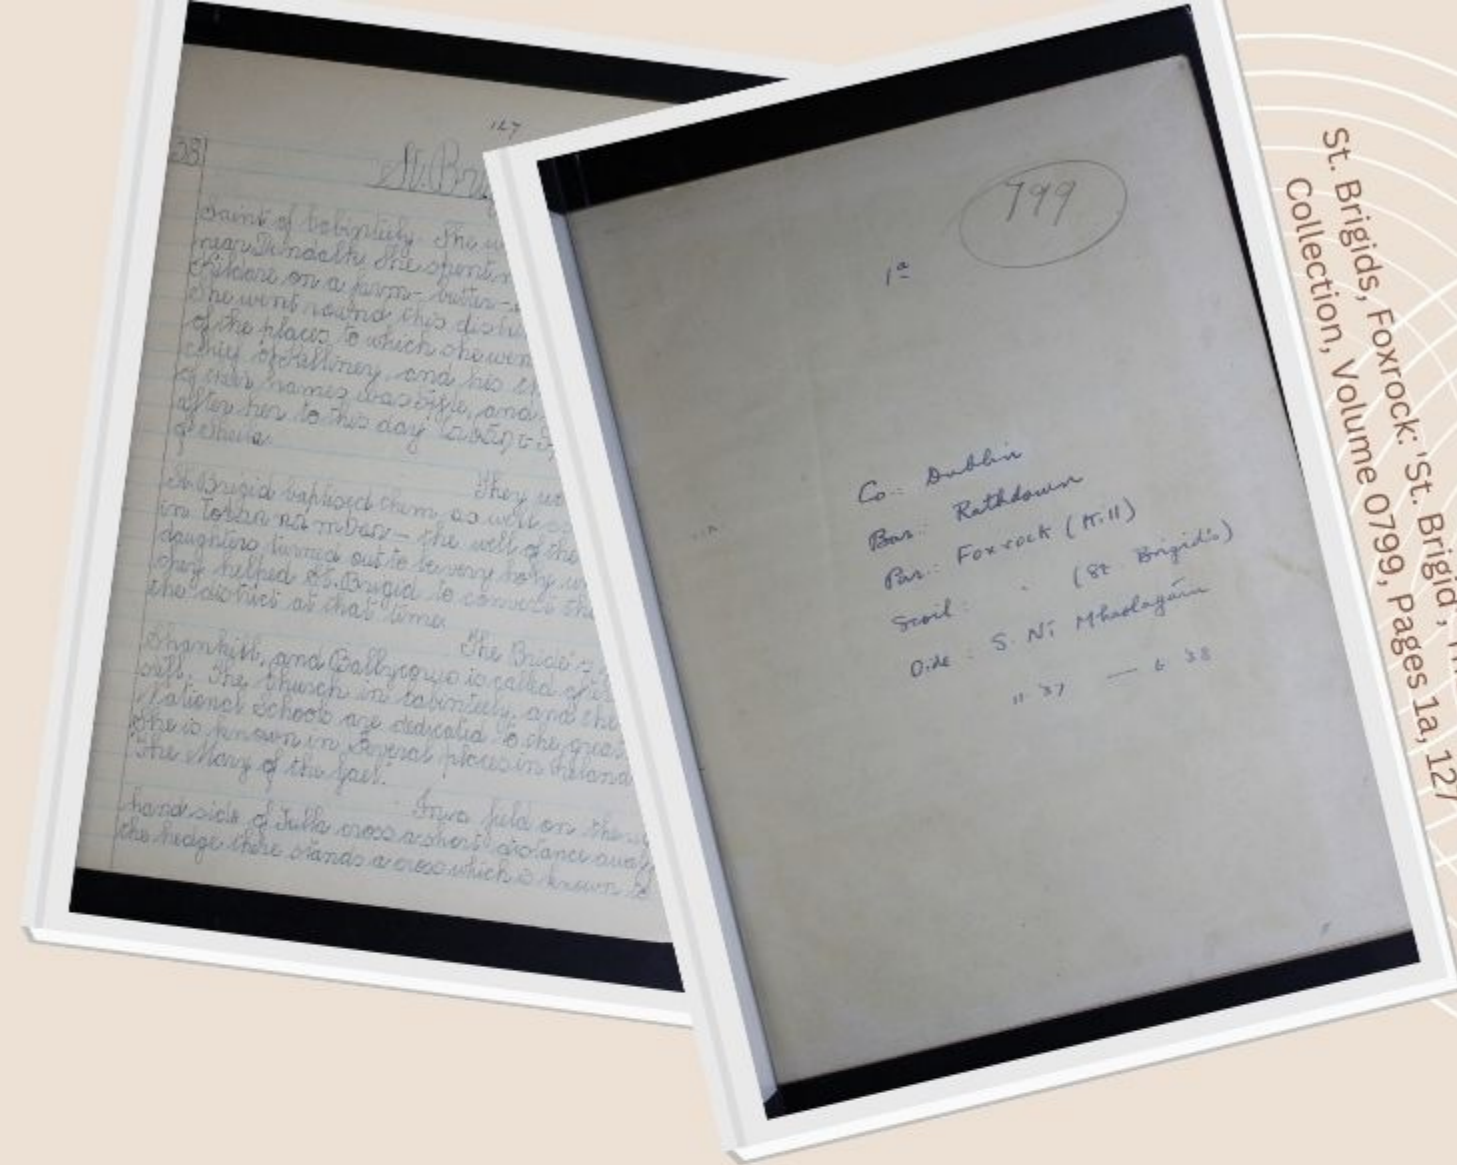 127
St. Bri
Saint of Cabinteely. She w
near Dundalk. She spent
Kildare on a farm - butter-
She went round this distri
of the places to which she wen
chief of Killiney, and his
of their names was
after her to this day
of
They we
St. Brigid baptised them, as well
in Tobar na mban - the well of the
daughters turned out to be very holy w
they helped St. Brigid to convert the
the district at that time.
The Bride's
Shankill, and Ballycorus is called after
well. The church in Cabinteely, and the
national schools are dedicated to the great
She is known in several places in Ireland
The Mary of the Gael.
In a field on the
hand side of Tulla cross a short distance away
the hedge there stands a cross which is known
799
1a
Co.: Dublin
Bar.: Rathdown
Par.: Foxrock (Kill)
Scoil: (St. Brigid's)
Oide: S. Ní Mhadagáin
11. 37 — 6 38
St. Brigids, Foxrock: 'St. Brigid',
Collection, Volume 0799, Pages 1a, 127